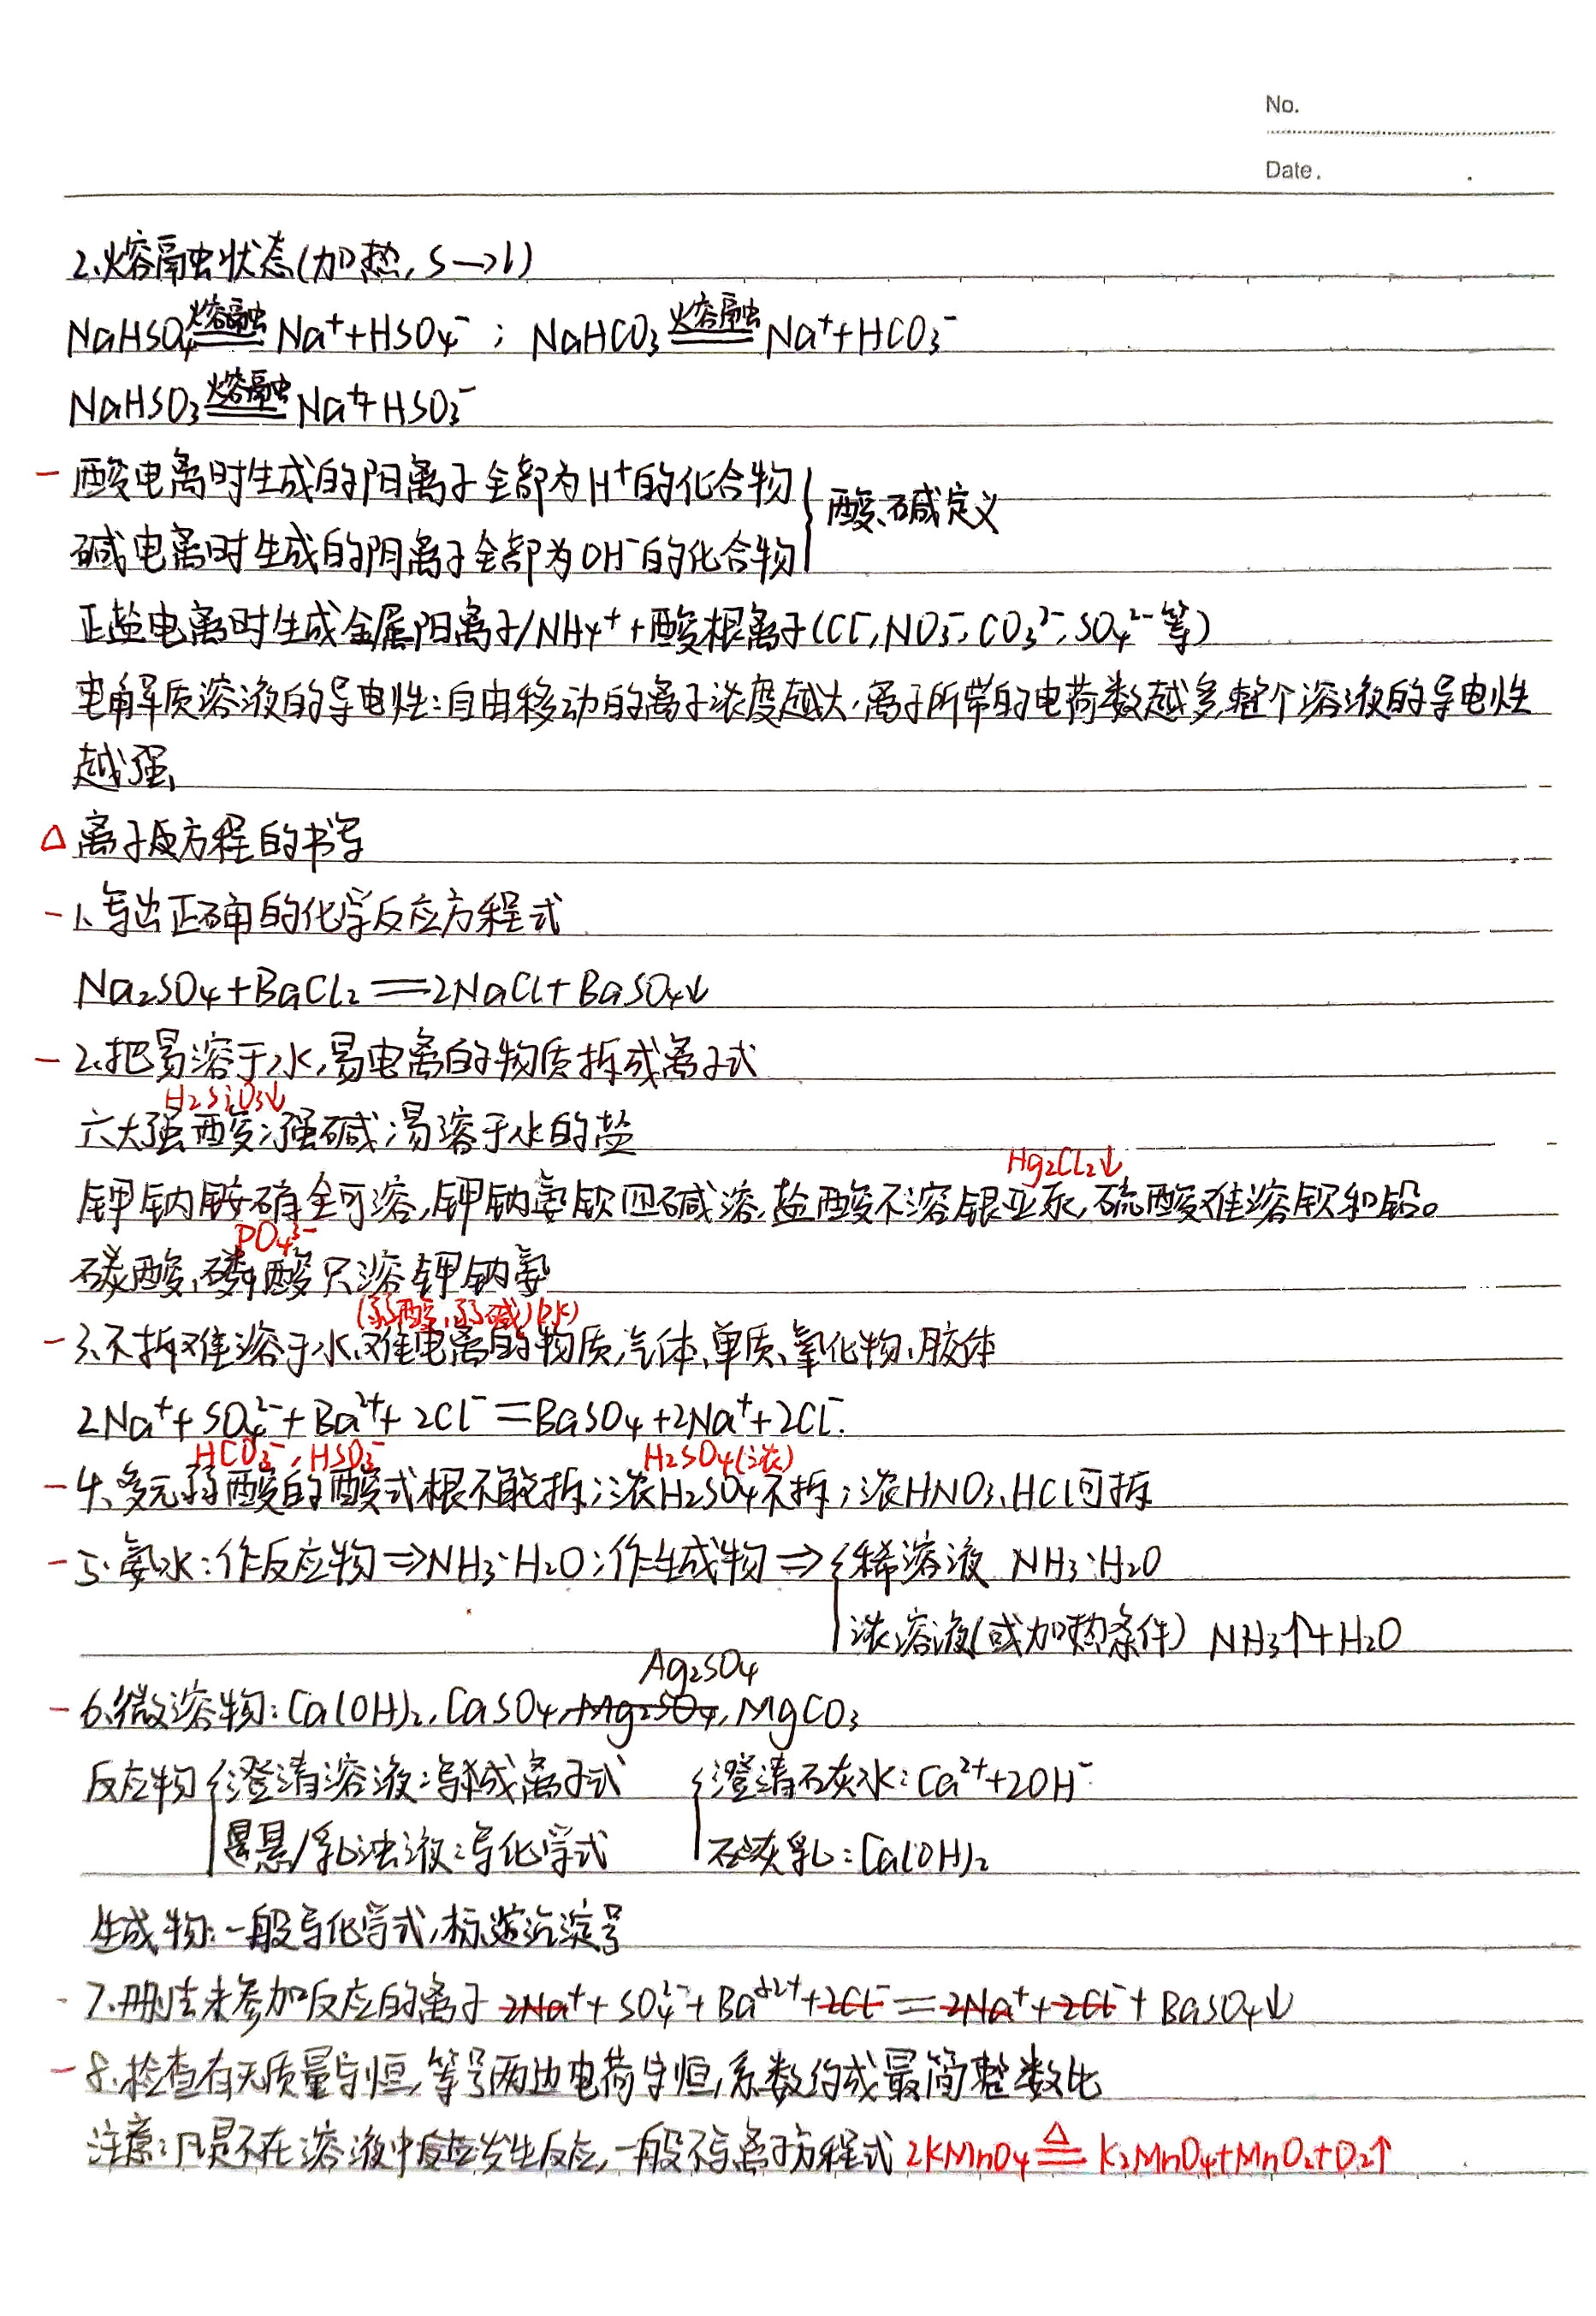 No.
Date.
2.熔融状态(加热,s→l)
NaHSO₄ 熔融══ Na⁺+HSO₄⁻ ; NaHCO₃ 熔融══ Na⁺+HCO₃⁻
NaHSO₃ 熔融══ Na⁺+HSO₃⁻
- 酸电离时生成的阳离子全部为H⁺的化合物
碱电离时生成的阴离子全部为OH⁻的化合物
} 酸、碱定义
正盐电离时生成金属阳离子/NH₄⁺+酸根离子(Cl⁻,NO₃⁻,CO₃²⁻,SO₄²⁻等)
电解质溶液的导电性:自由移动的离子浓度越大,离子所带的电荷数越多,整个溶液的导电性
越强,
△ 离子反方程的书写
- 1.写出正确的化学反应方程式
Na₂SO₄+BaCl₂══2NaCl+BaSO₄↓
- 2.把易溶于水,易电离的物质拆成离子式
H₂SiO₃↓
六大强酸;强碱;易溶于水的盐
Hg₂Cl₂↓
钾钠铵硝全可溶,钾钠氨钡四碱溶,盐酸不溶银亚汞,硫酸难溶钡和铅。
PO₄³⁻
碳酸,磷酸只溶钾钠氨
(弱酸,弱碱)(水)
- 3.不拆难溶于水,难电离的物质,气体、单质、氧化物、胶体
2Na⁺+SO₄²⁻+Ba²⁺+2Cl⁻═BaSO₄+2Na⁺+2Cl⁻.
HCO₃⁻,HSO₃⁻ H₂SO₄(浓)
- 4.多元弱酸的酸式根不能拆;浓H₂SO₄不拆;浓HNO₃、HCl可拆
- 5.氨水:作反应物⇒NH₃·H₂O;作生成物⇒{稀溶液 NH₃·H₂O
浓溶液(或加热条件) NH₃↑+H₂O
Ag₂SO₄
- 6.微溶物:Ca(OH)₂,CaSO₄,Mg₂SO₄,MgCO₃
反应物{澄清溶液:写成离子式 {澄清石灰水:Ca²⁺+2OH⁻
悬/乳浊液:写化学式 石灰乳:Ca(OH)₂
生成物:一般写化学式,标沉淀号
- 7.删去未参加反应的离子 2Na⁺+SO₄²⁻+Ba²⁺+2Cl⁻═2Na⁺+2Cl⁻+BaSO₄↓
- 8.检查有无质量守恒,等号两边电荷守恒,系数约成最简整数比
注意:凡是不在溶液中反应发生反应,一般不写离子方程式 2KMnO₄ △══ K₂MnO₄+MnO₂+O₂↑